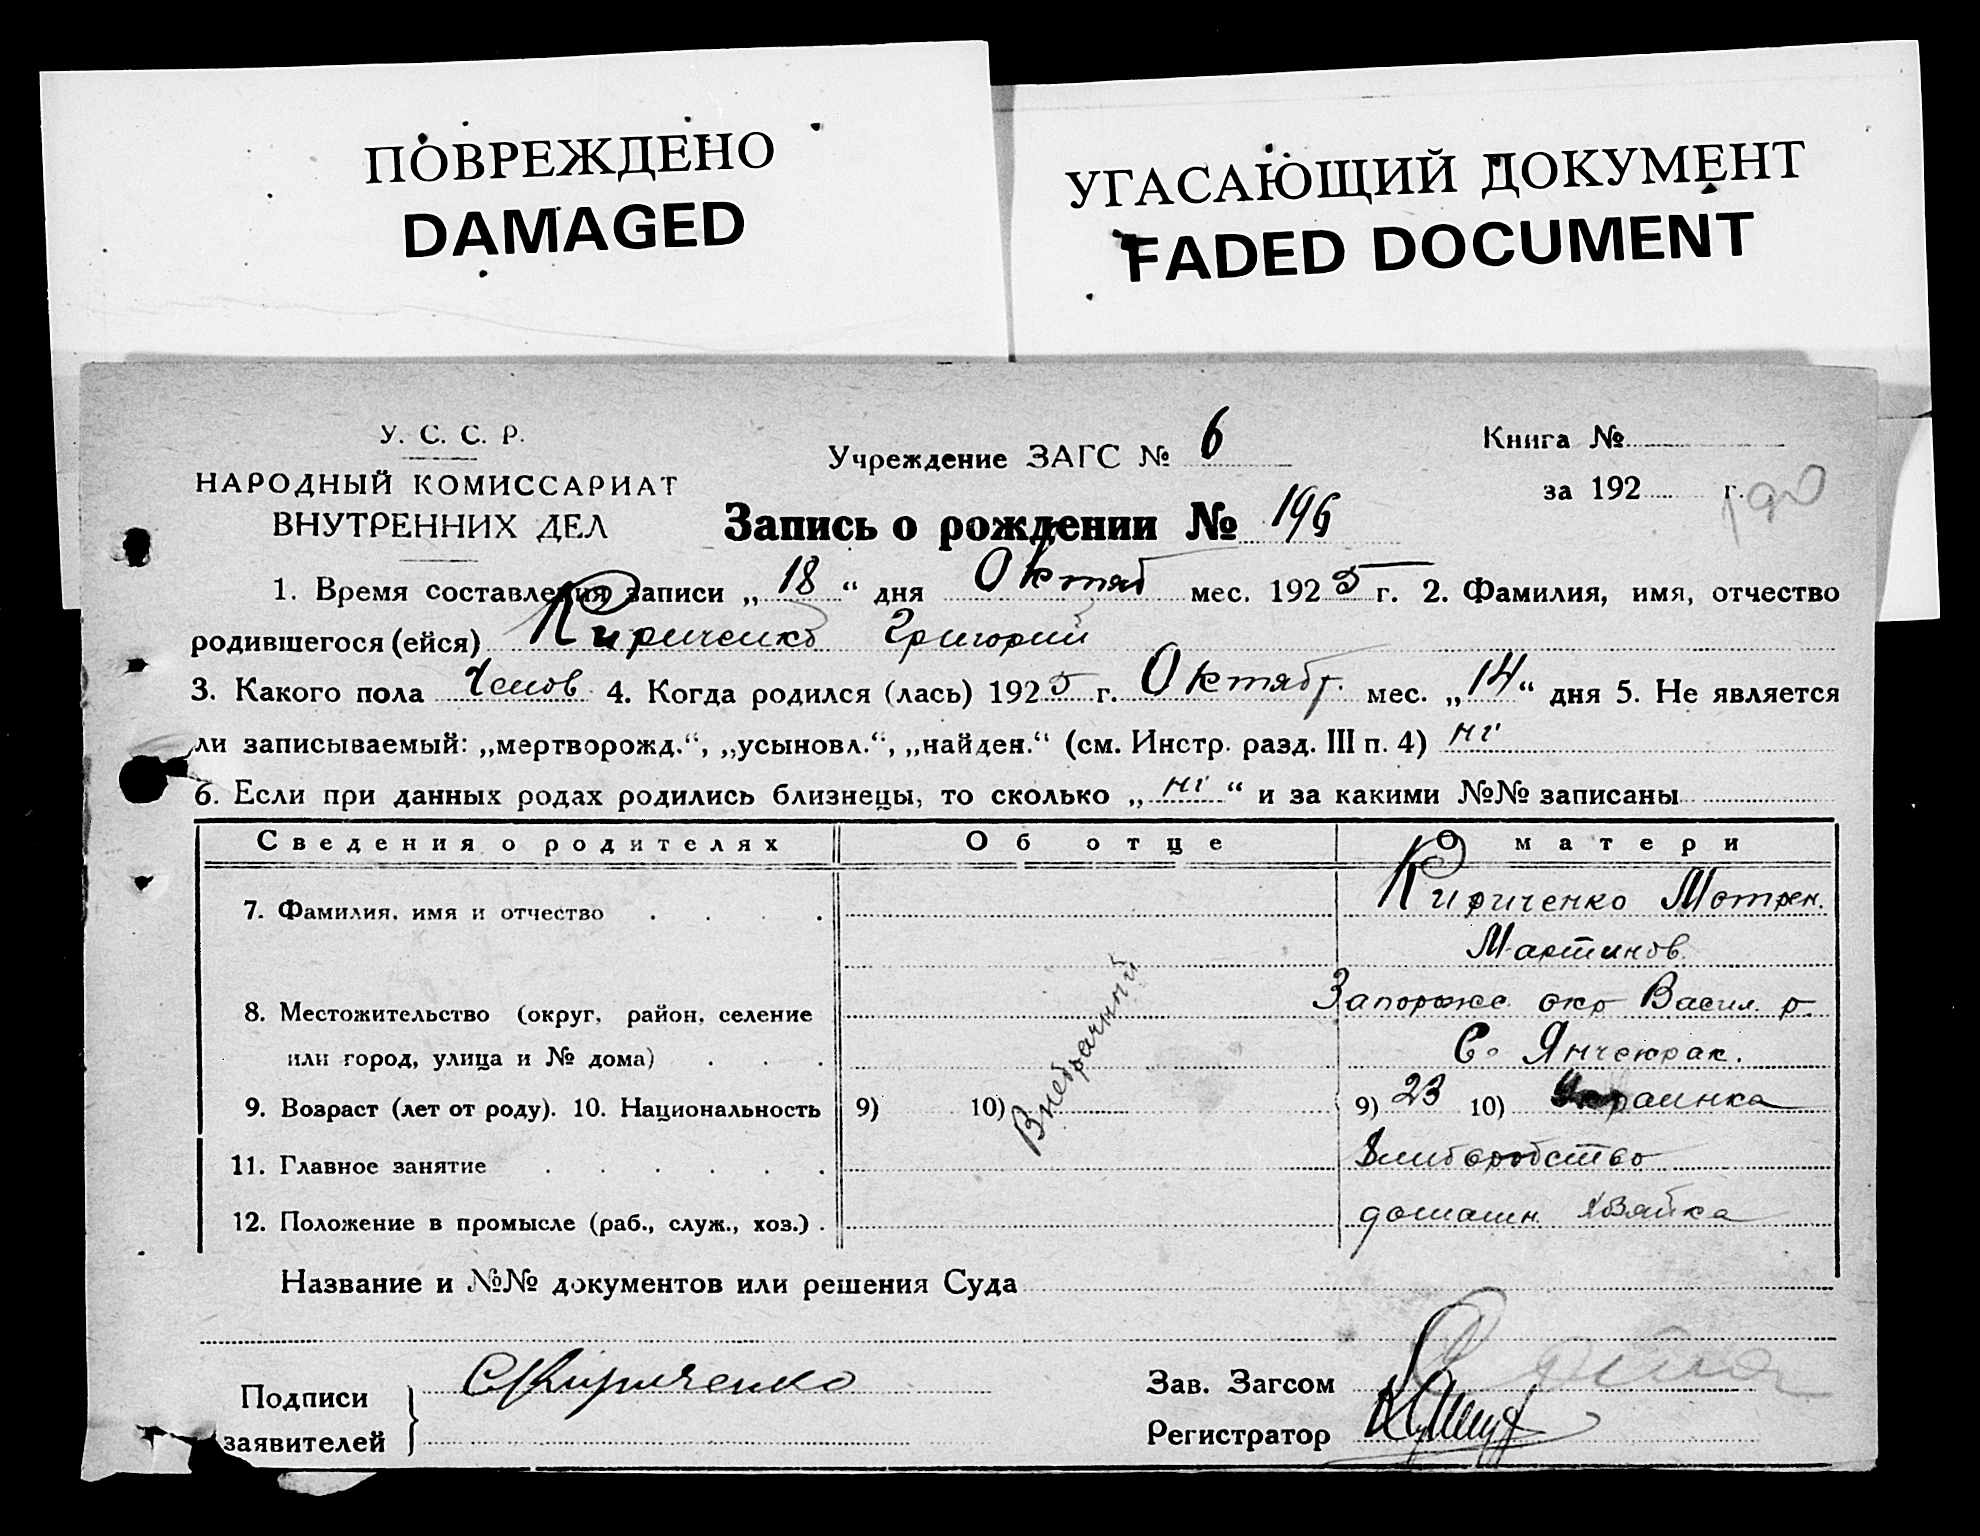 ПОВРЕЖДЕНО
DAMAGED
УГАСАЮЩИЙ ДОКУМЕНТ
FADED DOCUMENT
У. С. С. Р.
НАРОДНЫЙ КОМИССАРИАТ
ВНУТРЕННИХ ДЕЛ
Учреждение ЗАГС № 6
Книга №
за 192 г.
190
Запись о рождении № 196
1. Время составления записи „ 18 “ дня Октяб мес. 1925 г. 2. Фамилия, имя, отчество
родившегося (ейся) Кириченко Григорий
3. Какого пола Чолов 4. Когда родился (лась) 1925 г. Октябр. мес. „ 14 “ дня 5. Не является
ли записываемый: „мертворожд.“, „усыновл.“, „найден.“ (см. Инстр. разд. III п. 4) ні
6. Если при данных родах родились близнецы, то сколько „ ні “ и за какими №№ записаны
Сведения о родителях Об отце О матери
7. Фамилия, имя и отчество Кириченко Мотрен.
Мартинов.
8. Местожительство (округ, район, селение Запорожс. окр Васил. р.
или город, улица и № дома) С. Янчекрак.
Внебрачный
9. Возраст (лет от роду). 10. Национальность 9) 10) 9) 23 10) Украинка
11. Главное занятие
12. Положение в промысле (раб., служ., хоз.) домашн. хвяйка
Название и №№ документов или решения Суда
Подписи
заявителей
Кириченко
Зав. Загсом
Регистратор